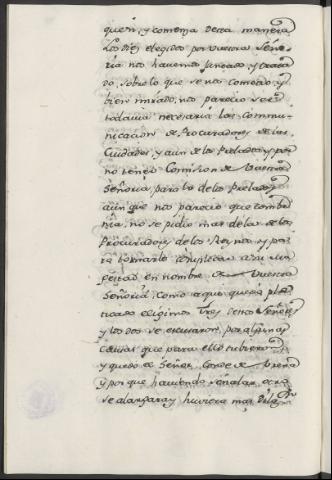 quen, y comensa desta manera
Los diez elegidos por vuestra Seño-
ria nos haviendo juntado, y trata-
do, sobre lo que se nos cometio, y
bien mirado, nos parecio ser
todavia necesaria la comu-
nicacion de Procuradores de las
Ciudades, y aun de los Prelados, y por
no tener Comision de Vuestra
Señoria, para lo de los Prelados,
aunque nos parecio que combe-
nia, no se pidio mas de la de los
Procuradores de los Reynos, y pa-
ra tornarlo a suplicar a su Ma-
gestad en nombre de Vuestra
Señoria, como aqui quedo pla-
ticado, eligimos tres destos Señores
y los dos se escusaron, por algunas
causas que para ello tubieron,
y quedo el Señor Conde de
y porque haviendo señalar otro
se alargara, y huviera mas